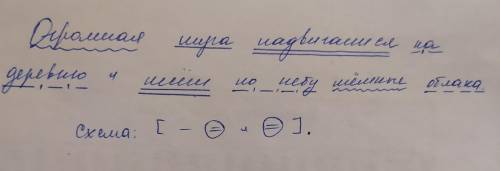 Огромная туча надвигалася на
деревню и по небу тёмные облака.
Схема: [ – = и = ].